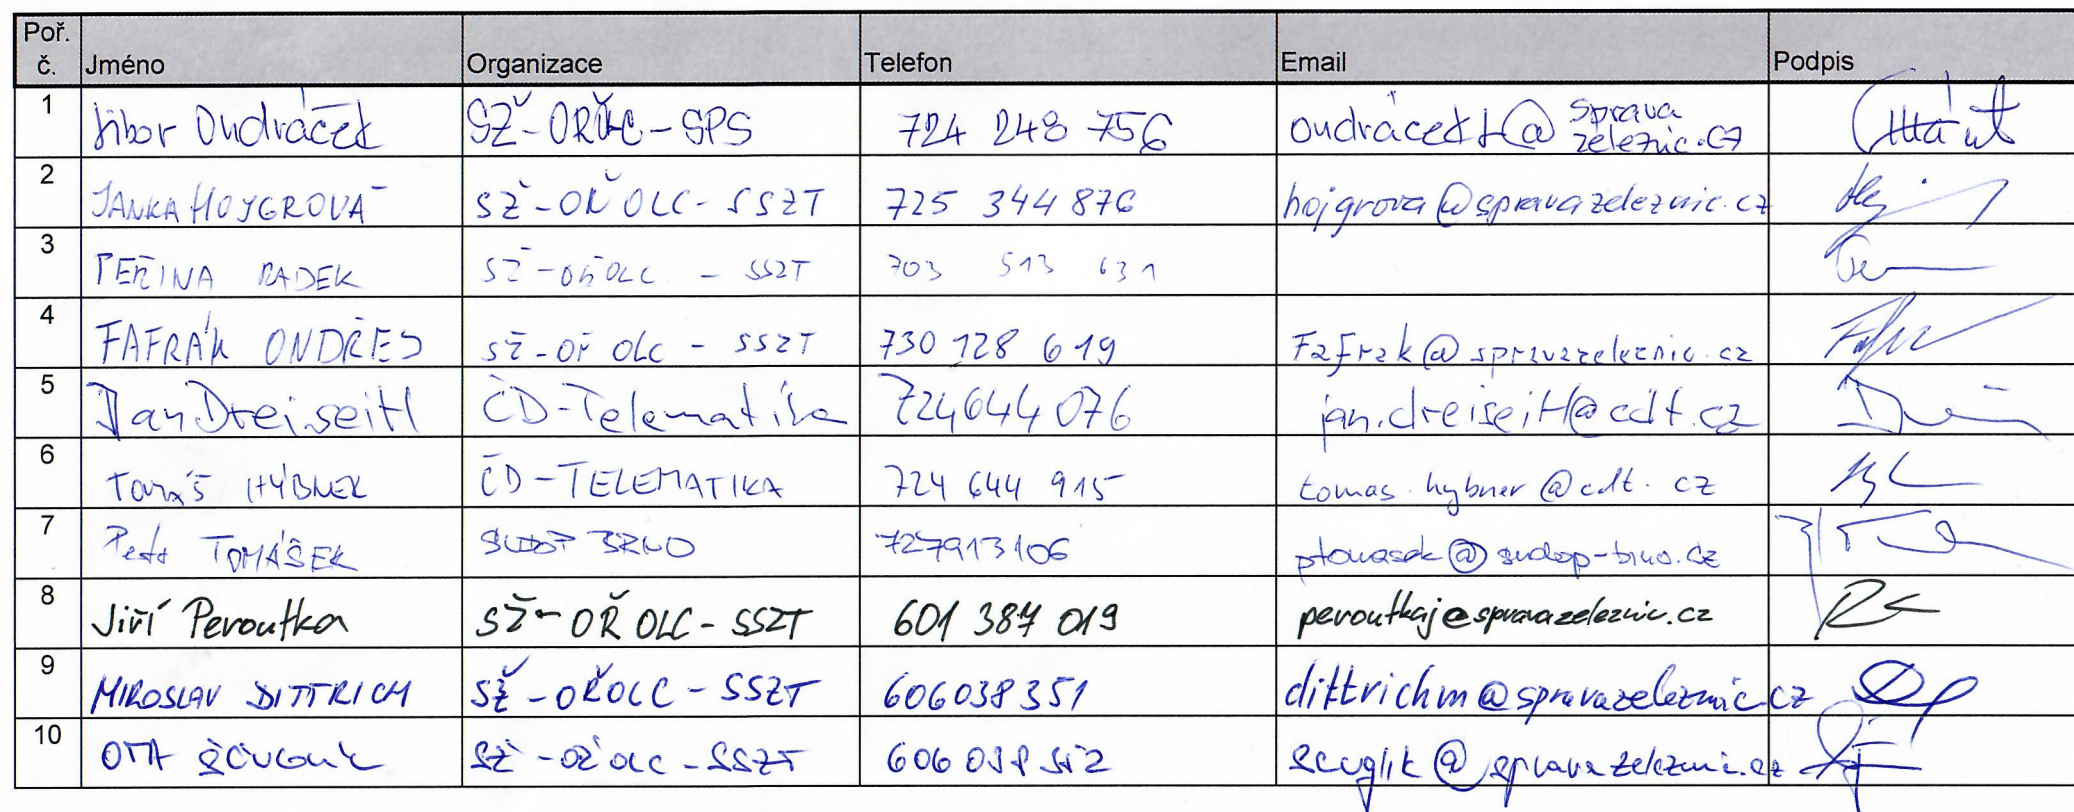 Poř. č. Jméno Organizace Telefon Email Podpis
1 Libor Ondráček SŽ-OŘOLC-SPS 724 248 756 ondracekl@spravazeleznic.cz
2 JANKA HOJGROVÁ SŽ-OŘ OLC-SSZT 725 344 876 hojgrova@spravazeleznic.cz
3 PEŘINA RADEK SŽ-OŘOLC - SSZT 703 513 631
4 FAFRÁK ONDŘEJ SŽ-OŘ OLC - SSZT 730 128 619 Fafrak@spravazeleznic.cz
5 Jan Dreiseitl ČD-Telematika 724644076 jan.dreiseitl@cdt.cz
6 Tomáš HÝBNER ČD-TELEMATIKA 724 644 915 tomas.hybner@cdt.cz
7 Petr TOMÁŠEK SUDOP BRNO 727913106 ptomasek@sudop-brno.cz
8 Jiří Peroutka SŽ-OŘ OLC-SSZT 601 387 019 peroutkaj@spravazeleznic.cz
9 MIROSLAV DITTRICH SŽ-OŘOLC-SSZT 606038351 dittrichm@spravazeleznic.cz
10 OTA SŽ-OŘ OLC-SSZT 606 038 scuglik@spravazeleznic.cz